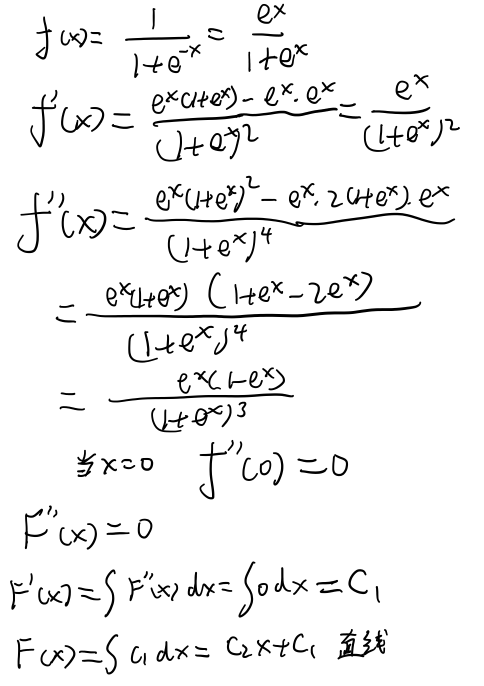 f(x) = 1/(1+e^{-x}) = e^x/(1+e^x)
f'(x) = (e^x(1+e^x) - e^x·e^x)/(1+e^x)^2 = e^x/(1+e^x)^2
f''(x) = (e^x(1+e^x)^2 - e^x·2(1+e^x)·e^x)/(1+e^x)^4
= (e^x(1+e^x)(1+e^x-2e^x))/(1+e^x)^4
= (e^x(1-e^x))/(1+e^x)^3
当x=0 f''(0)=0
F''(x)=0
F'(x)=∫F''(x)dx=∫0dx=C_1
F(x)=∫C_1dx=C_2x+C_1 直线